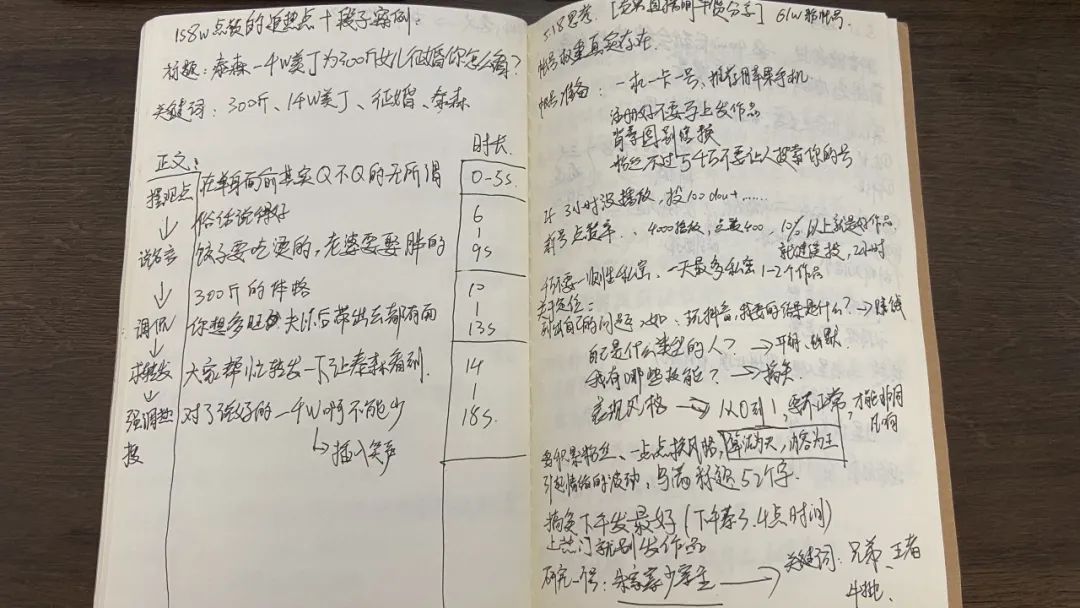 158w点赞的追热点+段子案例:
标题:泰森一千W美丁为300斤女儿征婚你怎么看?
关键词:300斤、1千W美丁、征婚、泰森
正文:
时长
摆观点
在 面前其实Q不Q的无所谓
0-5s
俗话说得好
说名言
饺子要吃烫的,老婆要娶胖的
6
|
9s
300斤的体格
调侃
你想多旺夫 以后带出去都有面
10
|
13s
求转发
大家帮忙转发一下让泰森看到
14
|
18s
强调热
对了说好的一千W啊不能少
投
↳插入笑声
5.18思考.[ 直播间干货分享]
帐号权重真实存在.
帐号准备:一机一卡一号、推荐用苹果手机
注册好不要马上发作品
背景图别乱换
粉丝不过5千不要让人搜索你的号
If 3小时没播放,投100dou+......
新号点赞率..4000播放,点赞400.10%以上就是好作品.
就继续投,2小时
不要一次性私密.一天最多私密1-2个作品
关于定位:
列出自己的问题 如:玩抖音,我要的结果是什么?→赚钱
自己是什么类型的人?→ 幽默
我有哪些技能?→搞笑
表现风格→从0到1,要不正常,才能非同凡响
要积累粉丝、一点点换风格,

, 内容为王
引起情绪的波动,写满标题52个字.
搞笑下午发最好(下午茶3.4点时间)
上热门就别发作品
研究一号:朱家寨少寨主 → 关键词:兄弟、王者
牛排.